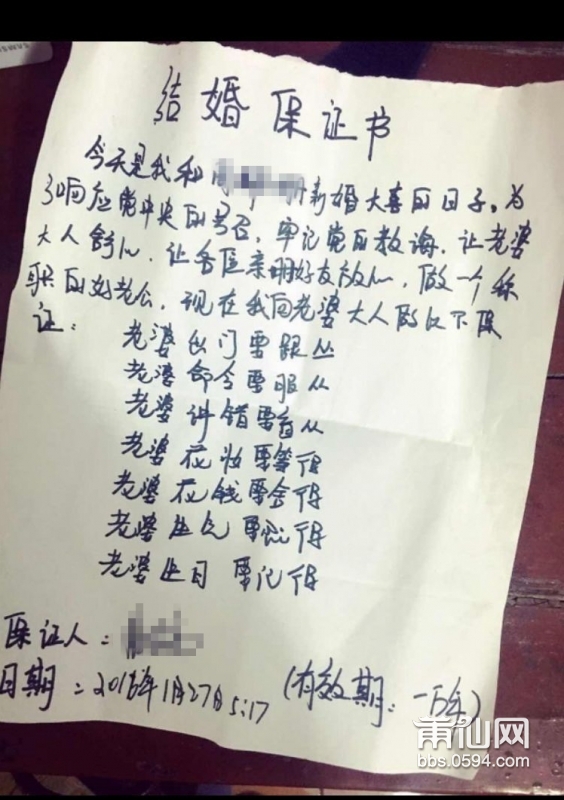 结婚保证书
今天是我和 新婚大喜的日子。为
了响应党中央的号召，牢记党的教诲，让老婆
大人舒心，让各位亲朋好友放心，做一个称
职的好老公，现在我向老婆大人做以下保
证：
老婆出门要跟丛
老婆命令要服从
老婆讲错要盲从
老婆花妆要等得
老婆花钱要舍得
老婆生气要忍得
老婆生日要记得
保证人：
日期：2016年1月27日5:17
(有效期：一百年)
莆仙网
bbs.0594.com